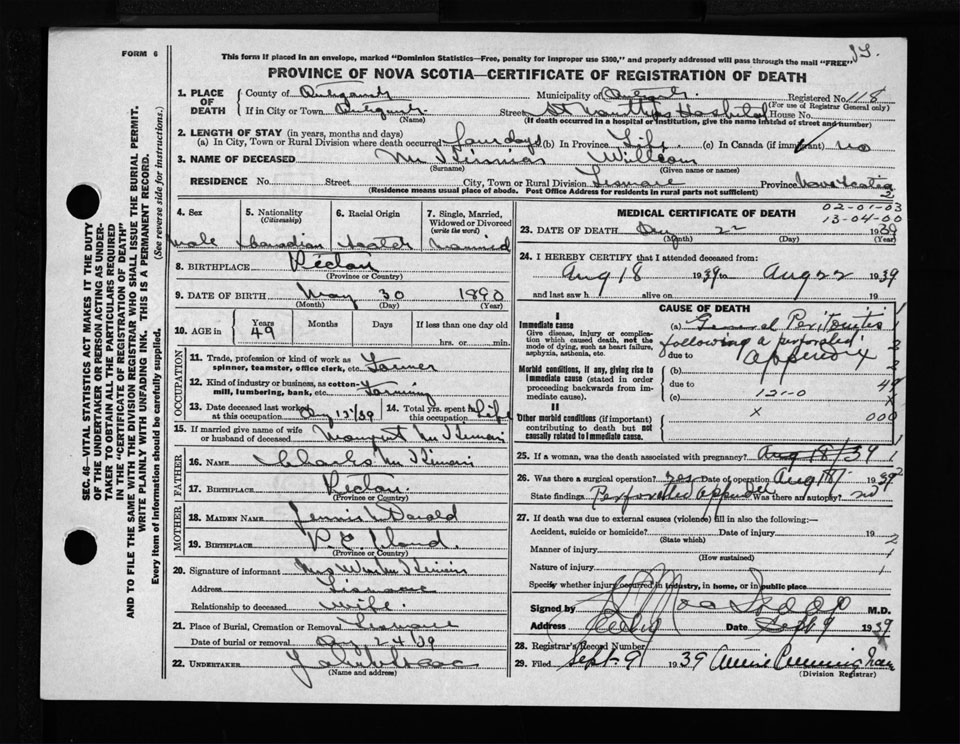 FORM 6
This form if placed in an envelope, marked "Dominion Statistics—Free, penalty for improper use $300," and properly addressed will pass through the mail "FREE"
PROVINCE OF NOVA SCOTIA—CERTIFICATE OF REGISTRATION OF DEATH
1. PLACE OF DEATH
County of
Municipality of
Registered No. 118
(For use of Registrar General only)
If in City or Town
(Name)
Street
House No.
(If death occurred in a hospital or institution, give the name instead of street and number)
2. LENGTH OF STAY (in years, months and days)
(a) In City, Town or Rural Division where death occurred four days (b) In Province Life (c) In Canada (if immigrant) no
3. NAME OF DECEASED
(Surname)
(Given name or names)
RESIDENCE No. Street City, Town or Rural Division Lismore Province Nova Scotia
(Residence means usual place of abode. Post Office Address for residents in rural parts not sufficient)
4. Sex
male
5. Nationality (Citizenship)
Canadian
6. Racial Origin
Scotch
7. Single, Married, Widowed or Divorced (write the word)
Married
8. BIRTHPLACE
(Province or Country)
9. DATE OF BIRTH May 30 1890
(Month) (Day) (Year)
10. AGE in
Years
49
Months
Days
If less than one day old
hrs. or min.
OCCUPATION
11. Trade, profession or kind of work as spinner, teamster, office clerk, etc. Farmer
12. Kind of industry or business, as cotton-mill, lumbering, bank, etc. Farming
13. Date deceased last worked at this occupation
14. Total yrs. spent in this occupation Life
15. If married give name of wife or husband of deceased
FATHER
16. NAME Charles
17. BIRTHPLACE
(Province or Country)
MOTHER
18. MAIDEN NAME
19. BIRTHPLACE P. E. Island.
(Province or Country)
20. Signature of informant
Address Lismore
Relationship to deceased wife.
21. Place of Burial, Cremation or Removal Lismore
Date of burial or removal Aug 24/39
22. UNDERTAKER
(Name and address)
MEDICAL CERTIFICATE OF DEATH
02-01-03
13-04-00
23. DATE OF DEATH Aug 22 1939
(Month) (Day) (Year)
24. I HEREBY CERTIFY that I attended deceased from:
Aug 18 1939 to Aug 22 1939
and last saw h alive on 19
CAUSE OF DEATH
I
Immediate cause
Give disease, injury or complication which caused death, not the mode of dying, such as heart failure, asphyxia, asthenia, etc.
(a) General Peritonitis
following a perforated
due to appendix
Morbid conditions, if any, giving rise to immediate cause (stated in order proceeding backwards from immediate cause).
(b)
due to
(c) 121-0
II
Other morbid conditions (if important) contributing to death but not causally related to immediate cause.
x
000
25. If a woman, was the death associated with pregnancy? Aug 18/39
26. Was there a surgical operation? yes Date of operation Aug 18/ 1939
State findings Perforated appendix Was there an autopsy? no
27. If death was due to external causes (violence) fill in also the following:—
Accident, suicide or homicide? Date of injury 19
(State which)
Manner of injury
(How sustained)
Nature of injury
Specify whether injury occurred in industry, in home, or in public place
Signed by M.D.
Address Date Sept 9 1939
28. Registrar's Record Number
29. Filed Sept 9 1939 Annie Cunningham
(Division Registrar)
SEC. 46—VITAL STATISTICS ACT MAKES IT THE DUTY
OF THE UNDERTAKER OR PERSON ACTING AS UNDERTAKER TO OBTAIN ALL THE PARTICULARS REQUIRED
IN THE "CERTIFICATE OF REGISTRATION OF DEATH"
AND TO FILE THE SAME WITH THE DIVISION REGISTRAR WHO SHALL ISSUE THE BURIAL PERMIT.
WRITE PLAINLY WITH UNFADING INK. THIS IS A PERMANENT RECORD.
Every item of information should be carefully supplied. (See reverse side for instructions.)